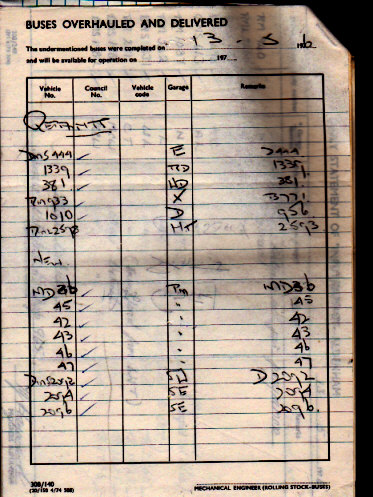 BUSES OVERHAULED AND DELIVERED
The undermentioned buses were completed on 13 . 5 197 6
and will be available for operation on 197
Vehicle No. Council No. Vehicle code Garage Remarks
DMS444 ✓ E D444
1339 ✓ 1339
381 ✓ 381.
✓ X
1010 ✓ D 956
✓ 2593
NEW.
MD36 ✓ MD36
45 ✓ " 45
42 ✓ " 42
43 ✓ " 43
46 ✓ " 46
47 ✓ " 47
DMS2092 ✓ D2092
2094 ✓ SE 2094
2096 ✓ SE 2096.
308/140
(20/158 4/74 38B)
MECHANICAL ENGINEER (ROLLING STOCK-BUSES)